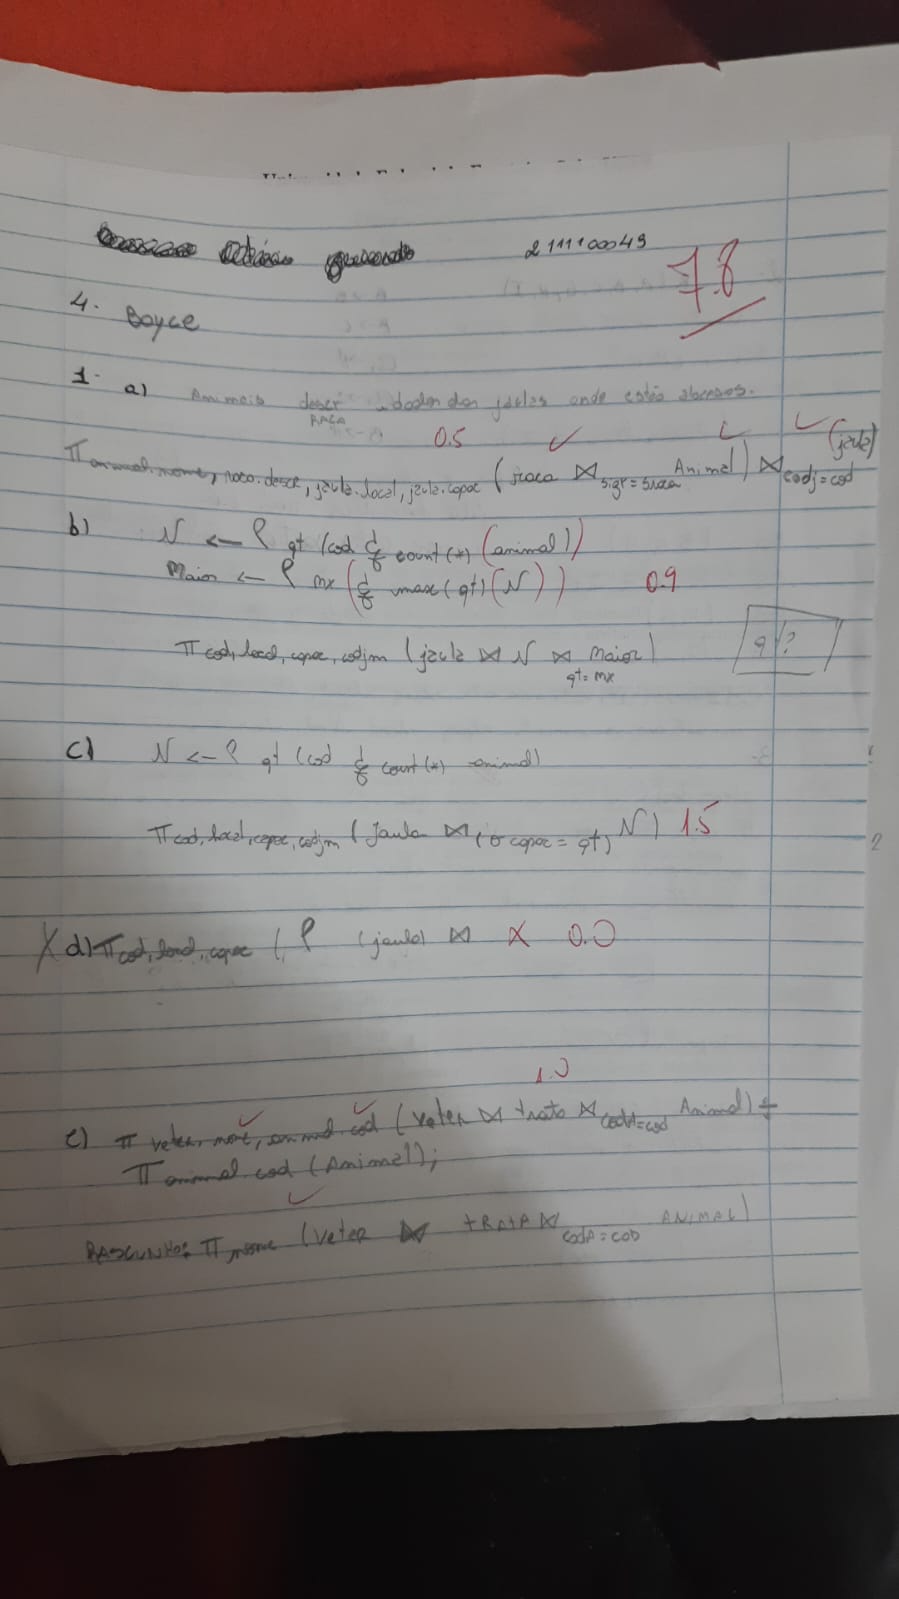 211100049
7.8
4. Boyce
1. a) Animais descr dados das jaulas onde estão
RAÇA
0.5
(jaula)
π animal.nome, raca.descr, jaula.local, jaula.capac (raca ⋈ sigr = sraca Animal) ⋈ codj = cod
b) N ← ρ qt (cod count(*) (animal))
Maior ← ρ mx ( max(qt) (N)) 0.9
π cod, local, capac, codjm (jaula ⋈ N ⋈ Maior)
qt = mx
9 ?
c) N ← ρ qt (cod count(*) animal)
π cod, local, capac, codjm (Jaula ⋈ (σ capac = qt) N) 1.5
X d) π cod, local, capac (ρ (jaula) ⋈ X 0.0
1.0
e) π veter.nome, animal.cod (veter ⋈ trata ⋈ codA=cod Animal) ÷
π animal cod (Animal);
RASCUNHO: π nome (veter ⋈ TRATA ⋈ codA = COD ANIMAL)